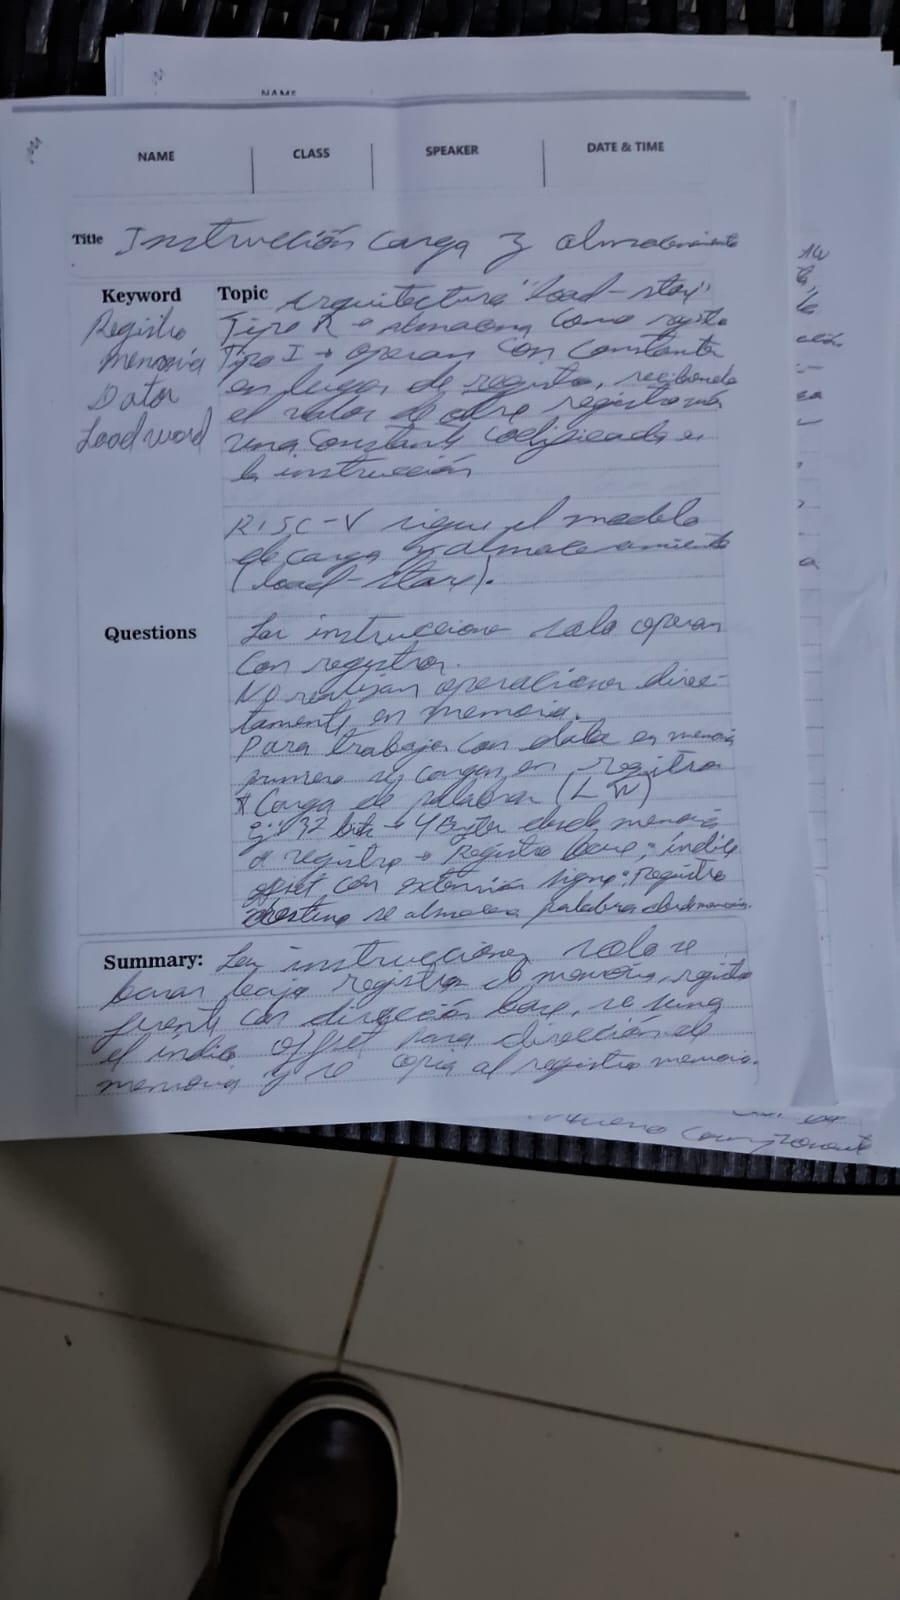 NAME
NAME CLASS SPEAKER DATE & TIME
Title Instrucción Carga y almacenamiento
Keyword Topic Arquitectura "Load-stor"
Registro Tipo R → almacena como registro
Memoria Tipo I → operan con constante
Dator en lugar de registro, recibiendo
Load word el valor de otro registro más
una constante codificada en
la instrucción
RISC-V sigue el modelo
de carga y almacenamiento
(load-stor).
Questions Las instrucciones solo operan
con registros.
No realizan operaciones direc-
tamente en memoria.
Para trabajar con data en memoria
primero se cargan en registro
* Carga de palabra (LW)
Ej: 32 bits → 4 Bytes desde memoria
a registro → Registro base; índice
offset con extensión signo; Registro
destino se almacena palabra desde memoria.
Summary: Las instrucciones solo se
basan bajo registros de memoria, registro
fuente con dirección base, se suma
el índice offset para dirección de
memoria y se copia al registro memoria.